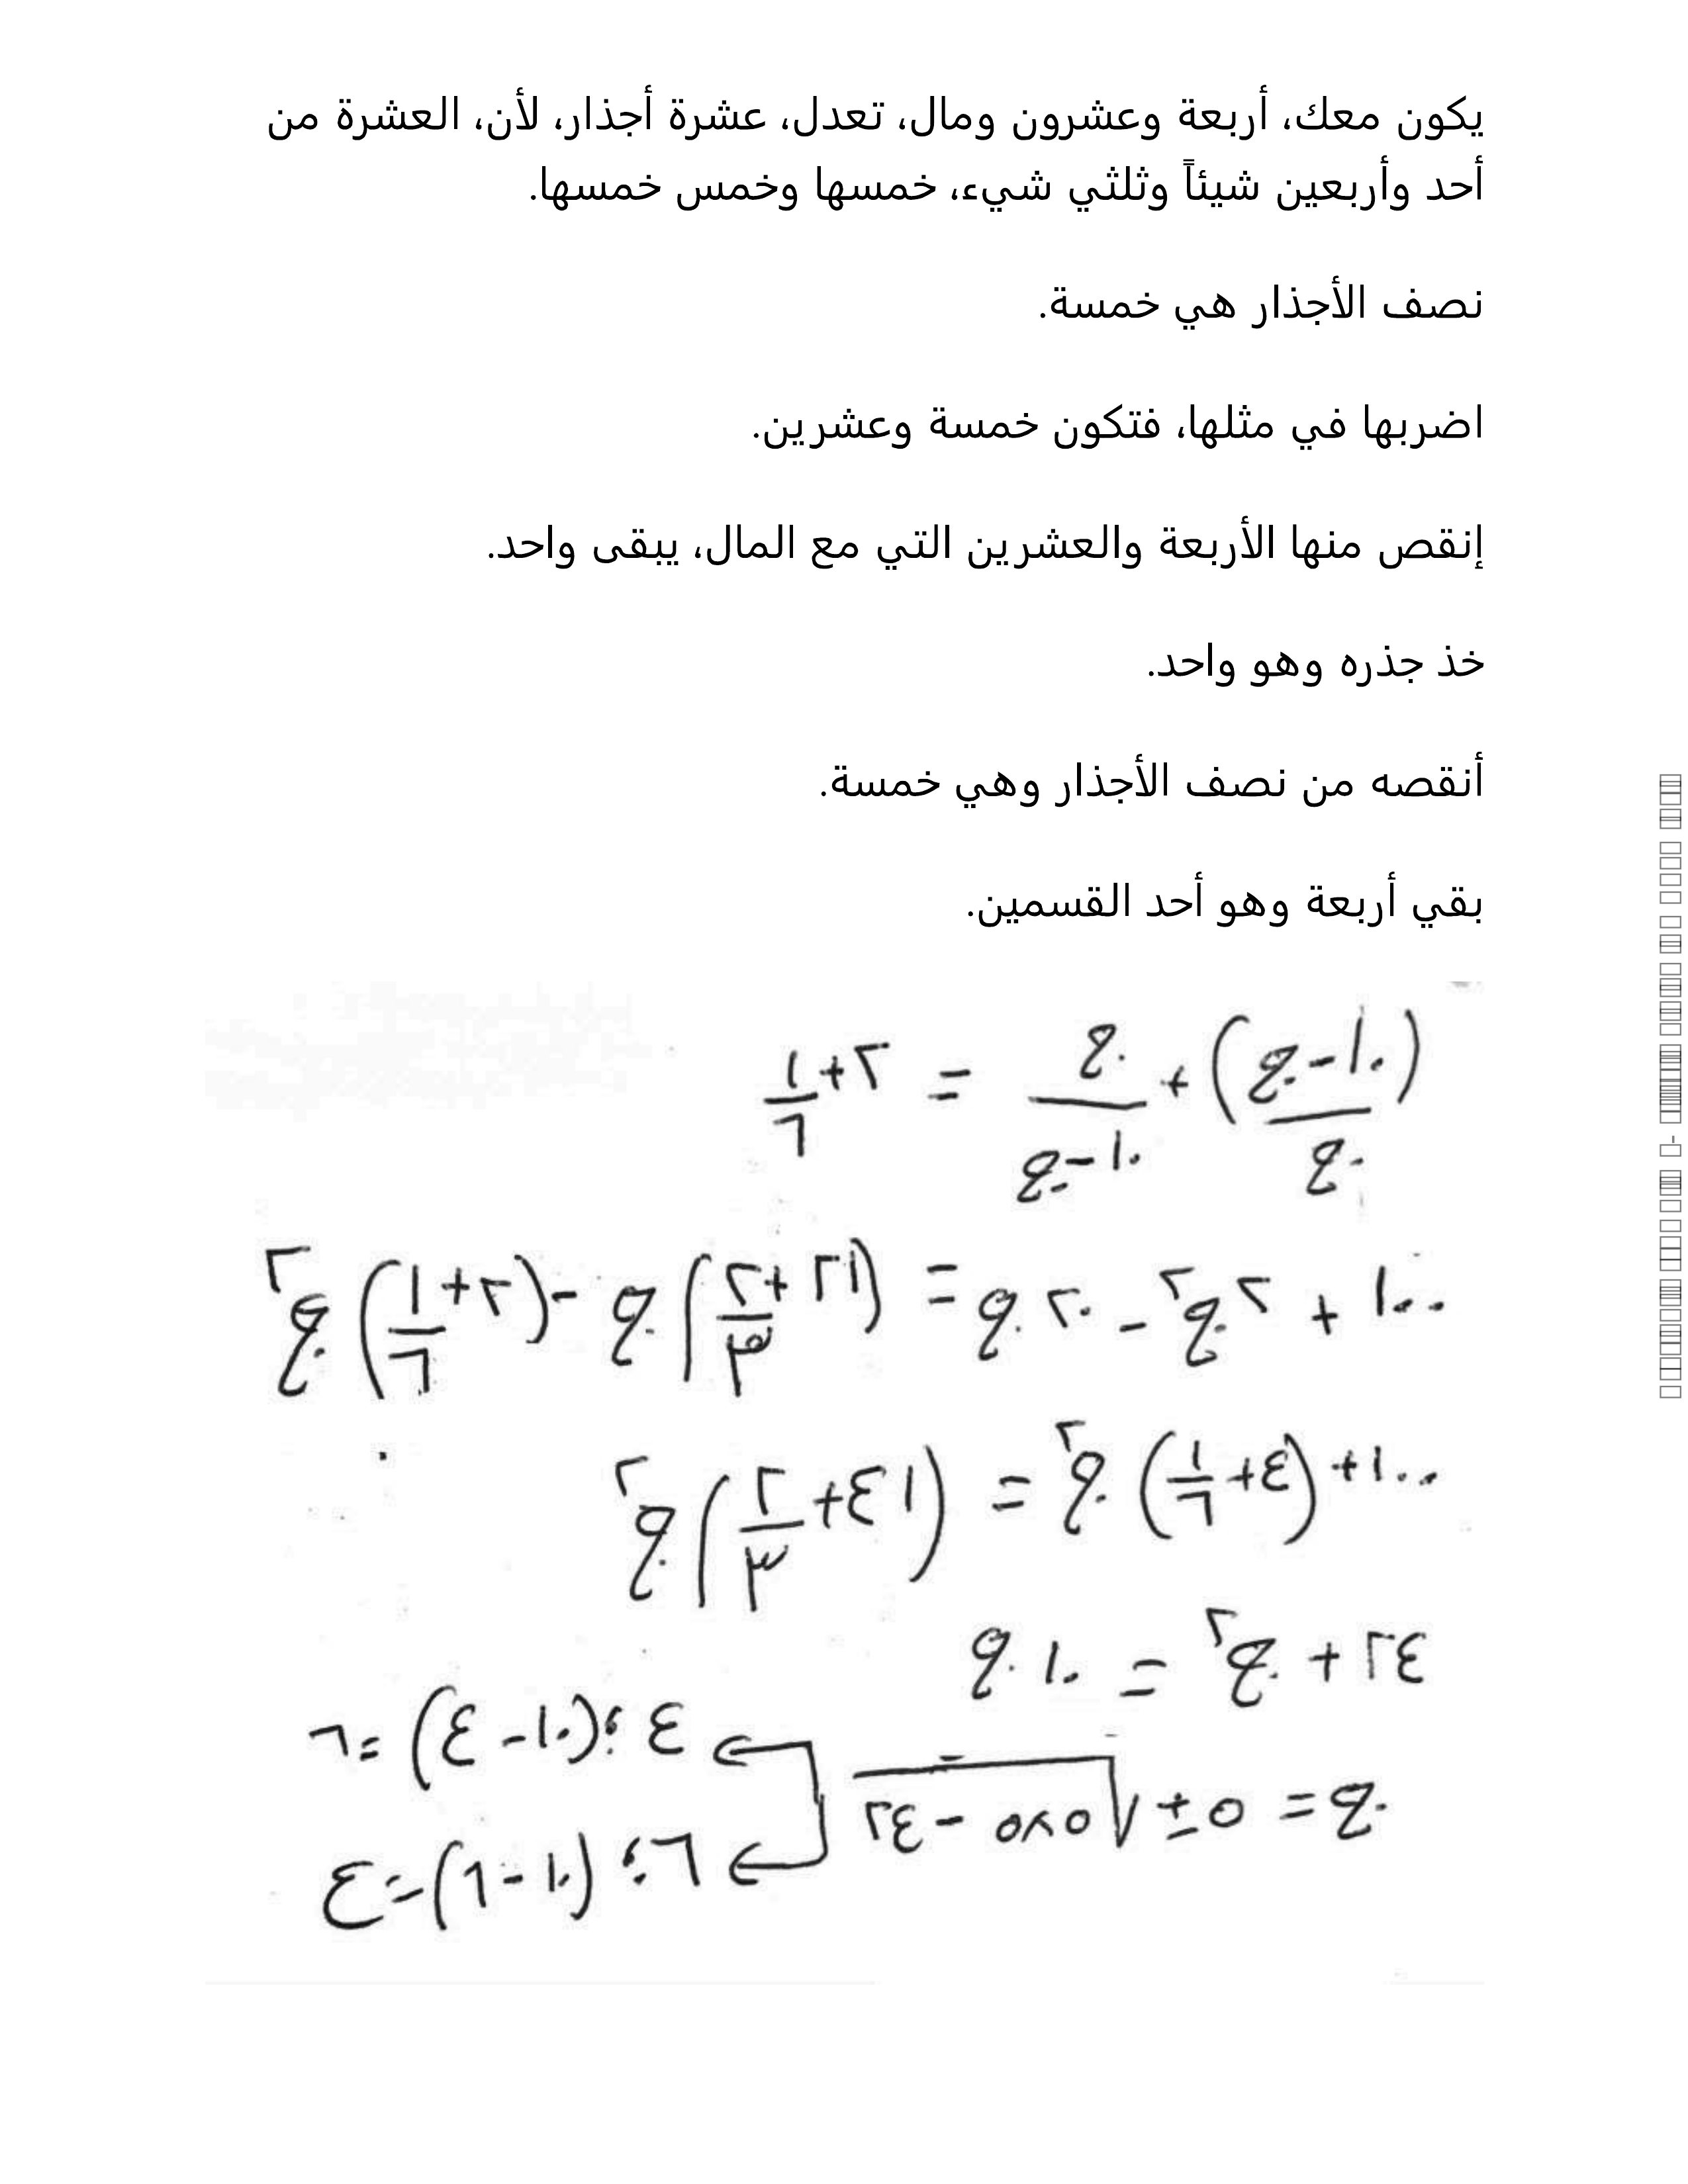 يكون معك، أربعة وعشرون ومال، تعدل، عشرة أجذار، لأن، العشرة من
أحد وأربعين شيئاً وثلثي شيء، خمسها وخمس خمسها.
نصف الأجذار هي خمسة.
اضربها في مثلها، فتكون خمسة وعشرين.
إنقص منها الأربعة والعشرين التي مع المال، يبقى واحد.
خذ جذره وهو واحد.
أنقصه من نصف الأجذار وهي خمسة.
بقي أربعة وهو أحد القسمين.
(١٠-ج)/ج + ج/(١٠-ج) = ٢+١/٦
١٠٠ + ٢ج٢ - ٢٠ج = (٢١+٢/٣)ج - (٢+١/٦)ج٢
١٠٠+ (٤+١/٦)ج٢ = (٤١+٢/٣)ج٢
٢٤ + ج٢ = ١٠ج
ج = ٥ ± √٥×٥ - ٢٤
٤؛ (١٠-٤) =٦
٦؛ (١٠-٦)=٤